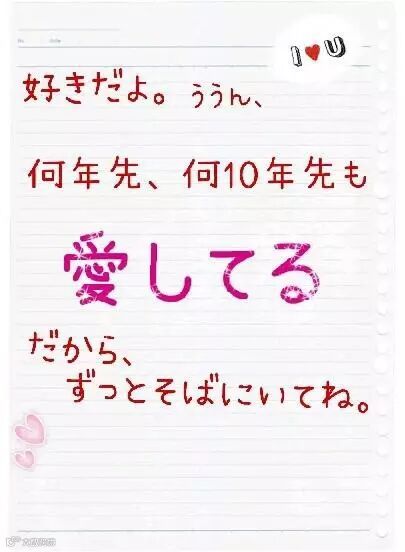 I♥U
好きだよ。ううん、
何年先、何10年先も
愛してる
だから、
ずっとそばにいてね。